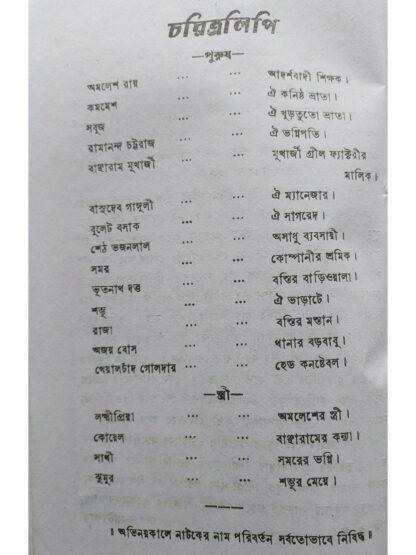 চরিত্রলিপি
—পুরুষ—
অমলেশ রায় ... ... আদর্শবাদী শিক্ষক।
কমলেশ ... ... ঐ কনিষ্ঠ ভ্রাতা।
সবুজ ... ... ঐ খুড়তুতো ভ্রাতা।
রামানন্দ চট্টরাজ ... ... ঐ ভগ্নিপতি।
বাঞ্ছারাম মুখার্জী ... ... মুখার্জী গ্রীল ফ্যাক্টরীর
মালিক।
বাসুদেব গাঙ্গুলী ... ... ঐ ম্যানেজার।
বুলেট বসাক ... ... ঐ সাগরেদ।
শেঠ ভজনলাল ... ... অসাধু ব্যবসায়ী।
সমর ... ... কোম্পানীর শ্রমিক।
ভূতনাথ দত্ত ... ... বস্তির বাড়িওয়ালা।
শম্ভু ... ... ঐ ভাড়াটে।
রাজা ... ... বস্তির মস্তান।
অজয় বোস ... ... থানার বড়বাবু।
খেয়ালচাঁদ গোলদার ... ... হেড কনষ্টেবল।
—স্ত্রী—
লক্ষ্মীপ্রিয়া ... ... অমলেশের স্ত্রী।
কোয়েল ... ... বাঞ্ছারামের কন্যা।
সাথী ... ... সমরের ভগ্নি।
ঝুমুর ... ... শম্ভুর মেয়ে।
॥ অভিনয়কালে নাটকের নাম পরিবর্তন সর্বতোভাবে নিষিদ্ধ॥